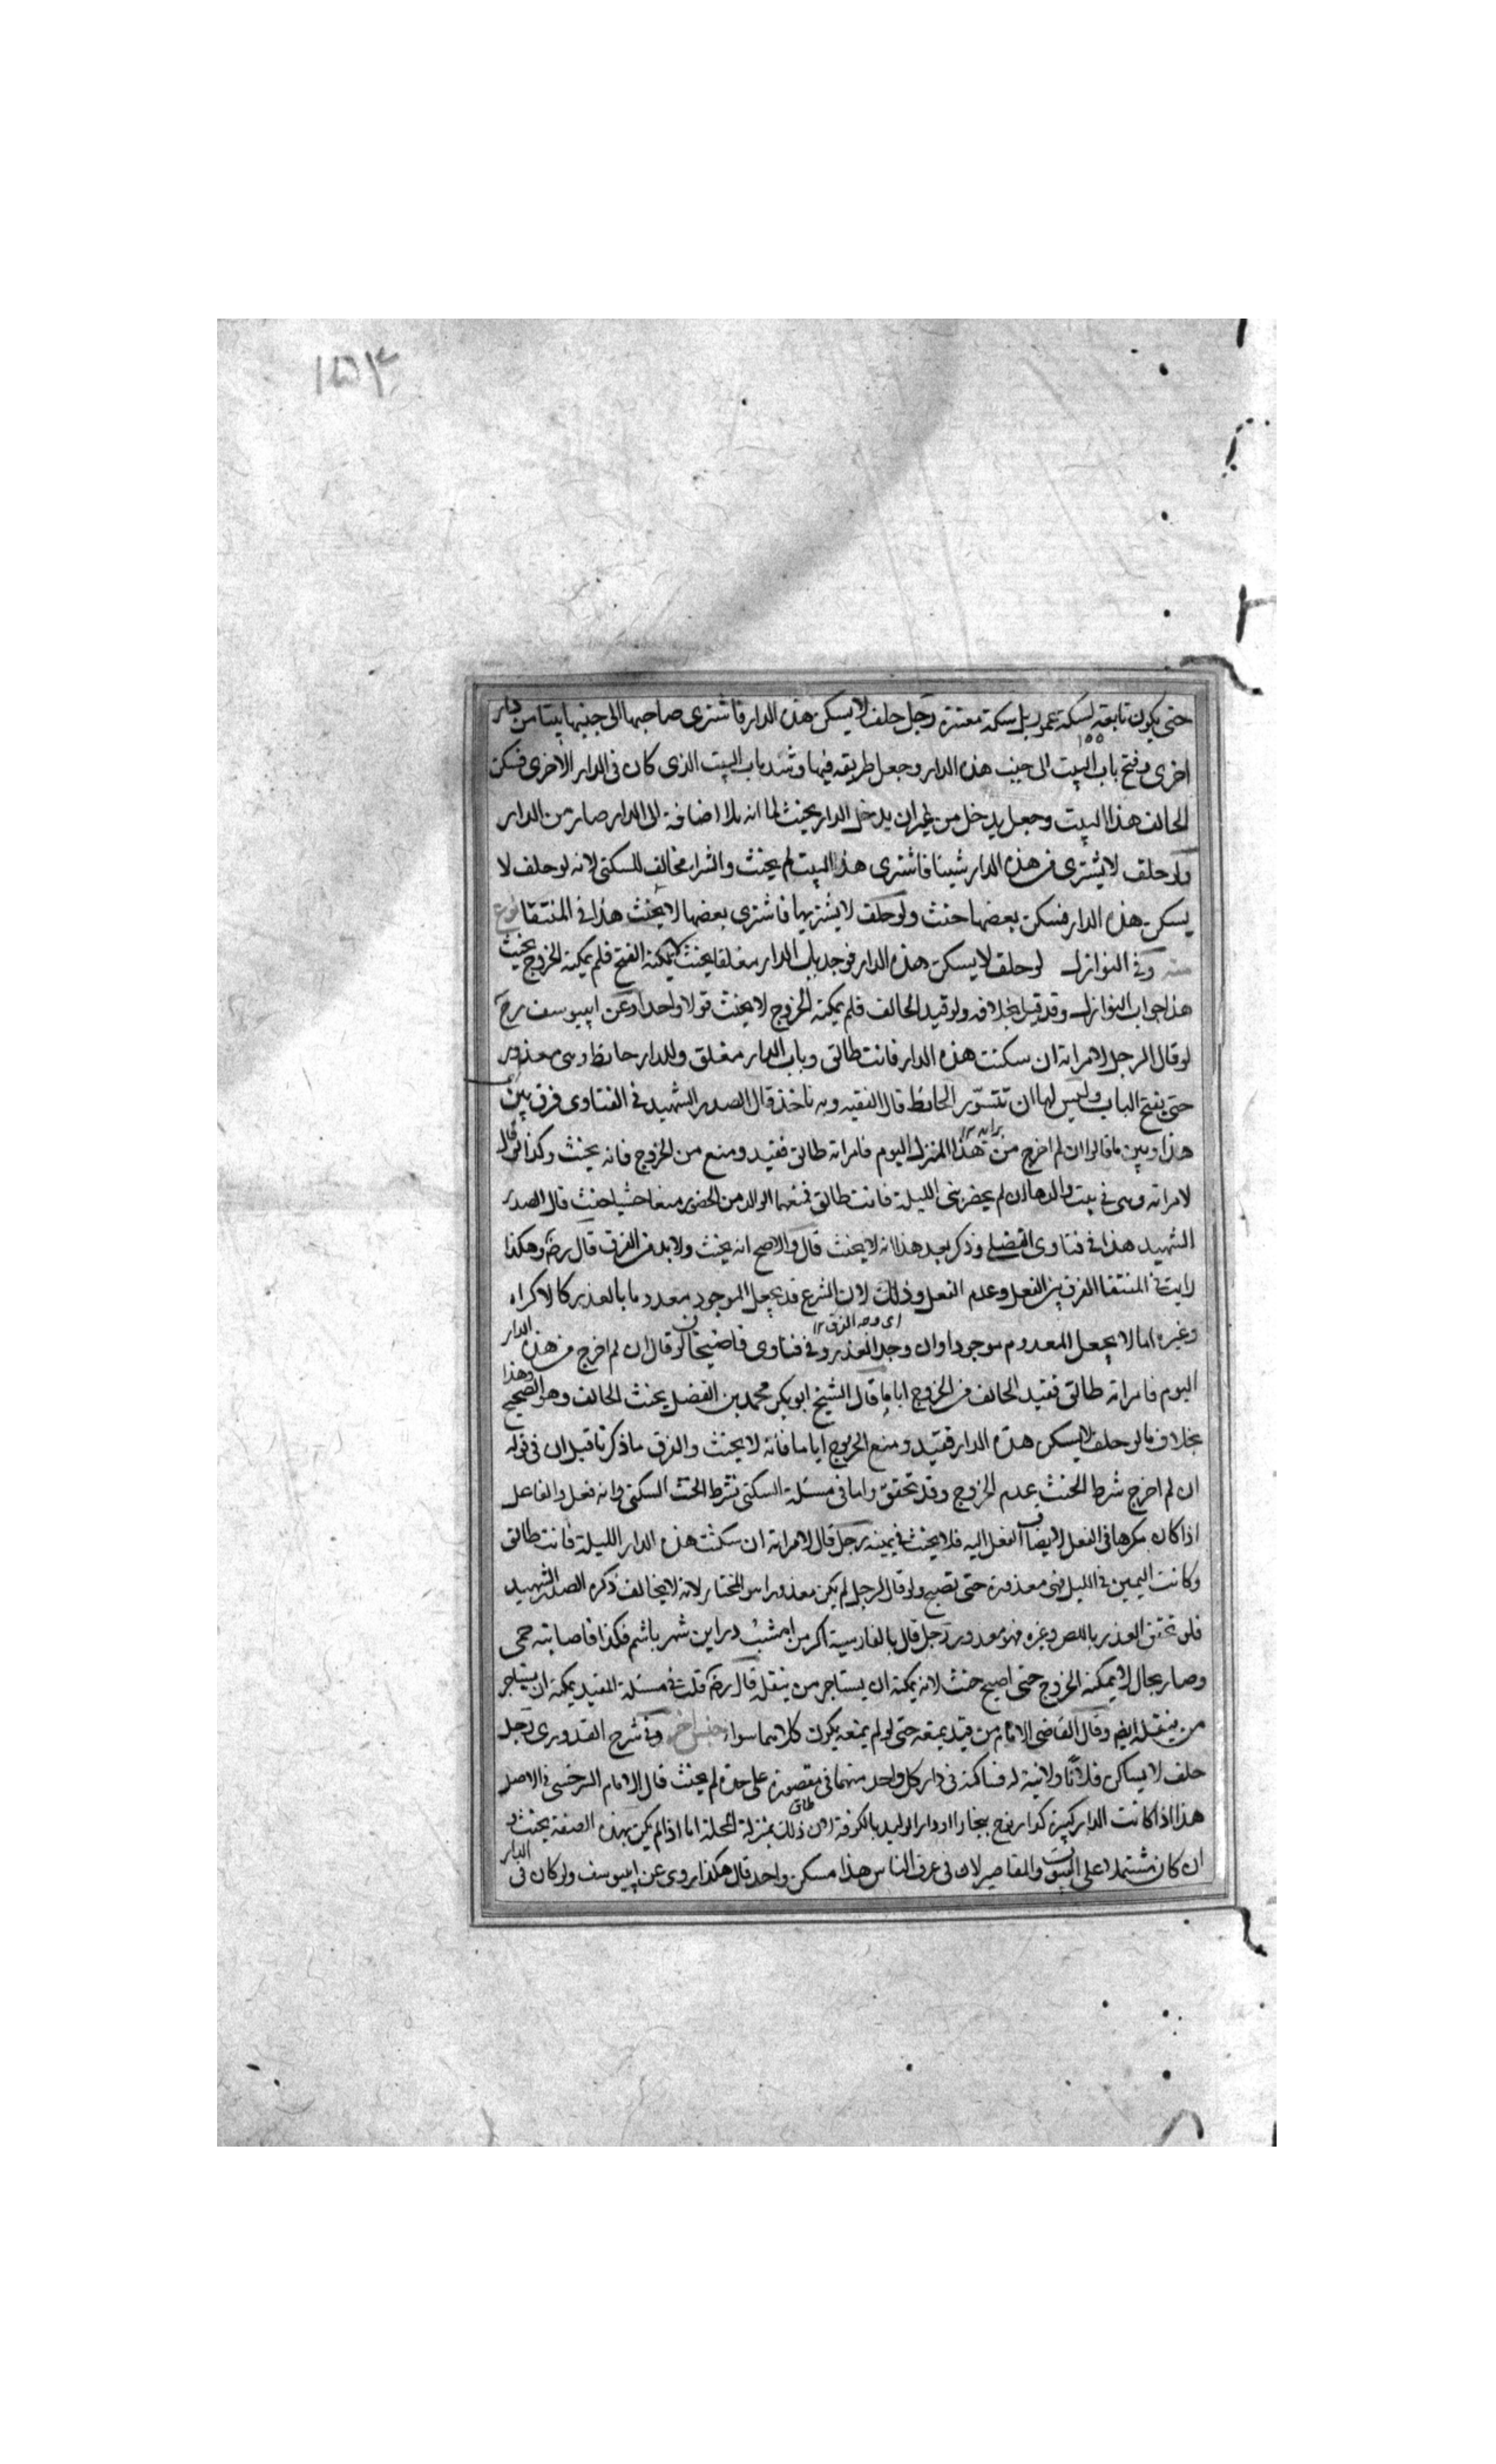 ١٥٣
حتى يكون تابعة لسكة عمور بل سكة معتبرة رجل حلف لا يسكن هذه الدار فاشترى صاحبها الى جنبها بيتا من دار
اخرى وفتح باب البيت الى جنب هذه الدار وجعل طريقه فيها وسد باب البيت الذى كان فى الدار الاخرى فسكن
الحالف هذا البيت وجعل يدخل من غير ان يدخل الدار يحنث لما انه بلا اضافة الى الدار صار من الدار
ولو حلف لا يشترى من هذه الدار شيئا فاشترى هذا البيت لم يحنث والشراء مخالف للسكنى لانه لو حلف لا
يسكن هذه الدار فسكن بعضها حنث ولو حلف لا يشتريها فاشترى بعضها لا يحنث هذا فى المنتقا نوع
منه وفى النوازل لو حلف لا يسكن هذه الدار فوجد باب الدار مغلقا بحيث لا يمكنه الفتح فلم يمكنه الخروج يحنث
هذا جواب النوازل وقد قيل بخلافه ولو قيد الحالف فلم يمكنه الخروج لا يحنث قولا واحدا وعن ابييوسف رح
لو قال الرجل لامراته ان سكنت هذه الدار فانت طالق وباب الدار مغلق وللدار حائط وهى معذورة
حتى يفتح الباب وليس لها ان تتسور الحائط قال الفقيه وبه ناخذ قال الصدر الشهيد فى الفتاوى فرق بين
هذا وبين ما قالوا ان لم اخرج من هذا المنزل اليوم فامراته طالق فقيد ومنع من الخروج فانه يحنث وكذا لو قال
لامراته وهى فى بيت والدها ان لم يحضرينى الليلة فانت طالق فمنعها الوالد من الحضور منعا حسيا حنث قال الصدر
الشهيد هذا فى فتاوى الفضلى وذكر بعد هذا انه لا يحنث قال والاصح انه يحنث ولا بد من الفرق قال رضه وهكذا
رايت فى المنتقا الفرق بين الفعل وعدم الفعل وذلك لان الشرع قد يجعل الموجود معدوما بالعذر كالاكراه
اى وجه الفرق ١٢
وغيره اما لا يجعل المعدوم موجودا وان وجد العذر وفى فتاوى قاضيخان لو قال ان لم اخرج من هذه الدار
اليوم فامراته طالق فقيد الحالف من الخروج اياما قال الشيخ ابو بكر محمد بن الفضل يحنث الحالف وهو الصحيح وهذا
بخلاف ما لو حلف لا يسكن هذه الدار فقيد ومنع الخروج اياما فانه لا يحنث والفرق ما ذكرنا قبل ان فى قوله
ان لم اخرج شرط الحنث عدم الخروج وقد تحقق واما فى مسئلة السكنى شرط الحنث السكنى وانه فعل والفاعل
اذا كان مكرها فى الفعل لا يضاف الفعل اليه فلا يحنث فى يمينه رجل قال لامراته ان سكنت هذه الدار الليلة فانت طالق
وكانت اليمين فى الليل فهى معذورة حتى تصبح ولو قال لرجل لم يكن معذورا هو المختار لانه لا يخالف ذكره الصدر الشهيد
فلو تحقق العذر باللص وغيره فهو معذور رجل قال بالفارسية اكر من امشب درين شهر باشم فكذا فاصابته حمى
وصار بحال لا يمكنه الخروج حتى اصبح حنث لانه يمكنه ان يستاجر من ينقله قال رضه قلت فى مسئلة المقيد يمكنه ان يستاجر
من ينقله ايضا وقال القاضى الامام من قيد يمنعه حتى لو لم يمنعه يكون كلاهما سواء جنس اخر وفى شرح القدورى رجل
حلف لا يساكن فلانا ولا نية له فساكنه فى دار كل واحد منهما فى مقصورة على حدة لم يحنث قال الامام السرخسى فى الاصل
هذا اذا كانت الدار كبيرة كدار نوح ببخارا او دار الوليد بالكوفة لان ذلك بمنزلة المحلة اما اذا لم يكن بهذه الصفة يحنث و
ان كان مشتملا على البيوت والمقاصير لان فى عرف الناس هذا مسكن واحد قال هكذا روى عن ابييوسف ولو كان فى الدار